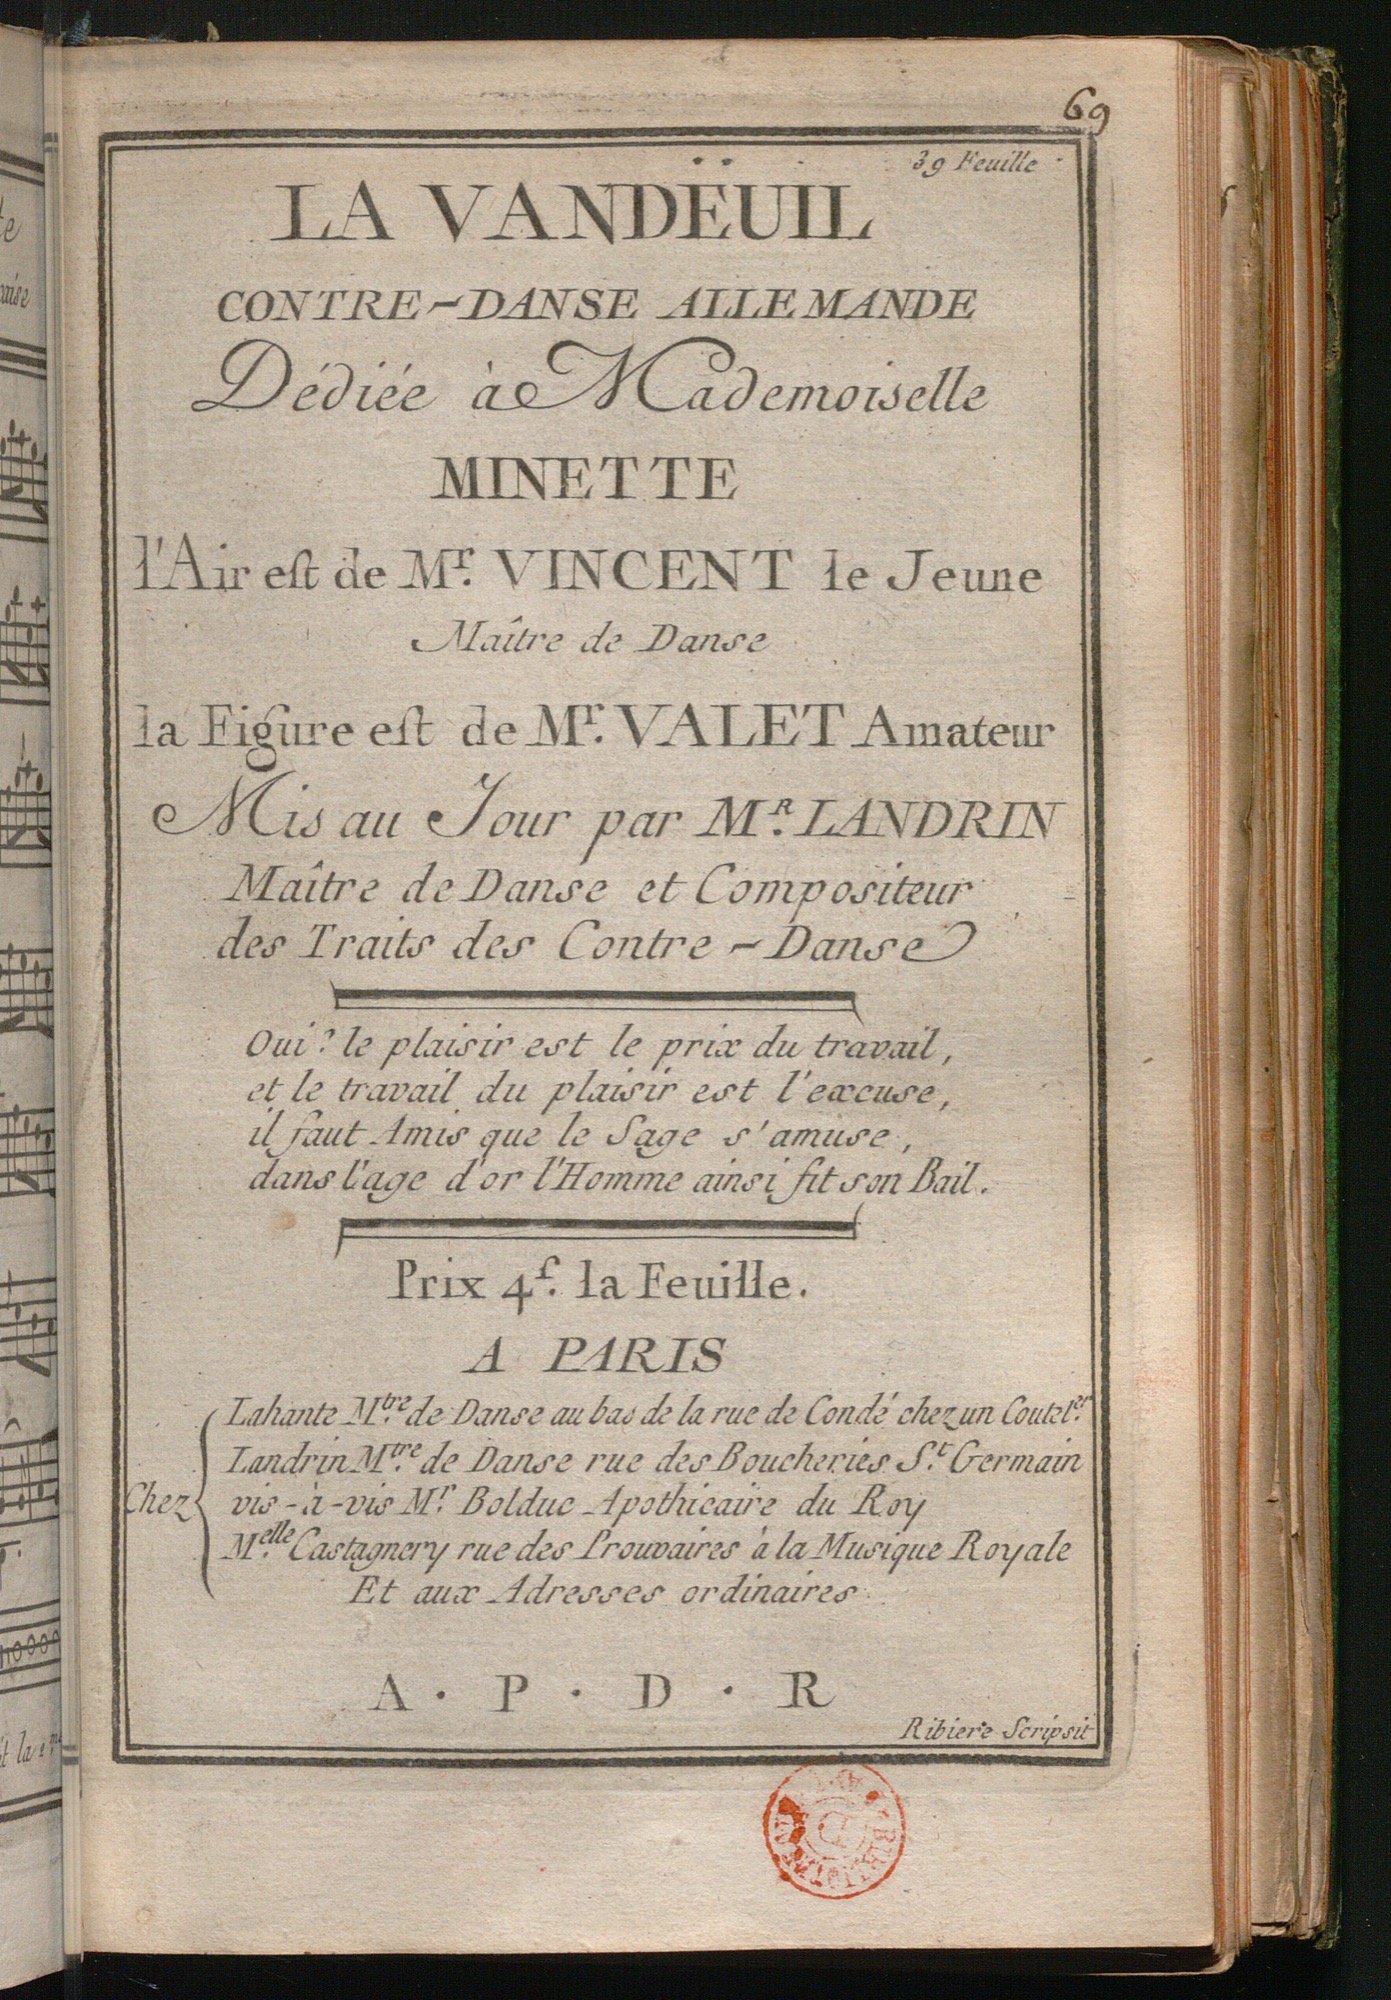 69
39 Feuille
LA VANDËUIL
CONTRE-DANSE ALLEMANDE
Dédiée à Mademoiselle
MINETTE
l'Air est de Mr. VINCENT le Jeune
Maître de Danse
la Figure est de Mr. VALET Amateur
Mis au Jour par MR. LANDRIN
Maître de Danse et Compositeur
des Traits des Contre-Danse
Oui? le plaisir est le prix du travail,
et le travail du plaisir est l'excuse,
il faut Amis que le Sage s'amuse,
dans l'age d'or l'Homme ainsi fit son Bail.
Prix 4f. la Feuille.
A PARIS
Lahante Mtre. de Danse au bas de la rue de Condé chez un Coutel.er
Landrin Mtre. de Danse rue des Boucheries St. Germain
Chez vis-à-vis Mr. Bolduc Apothicaire du Roy
Melle. Castagnery rue des Prouvaires à la Musique Royale
Et aux Adresses ordinaires
A . P . D . R
Ribiere Scripsit